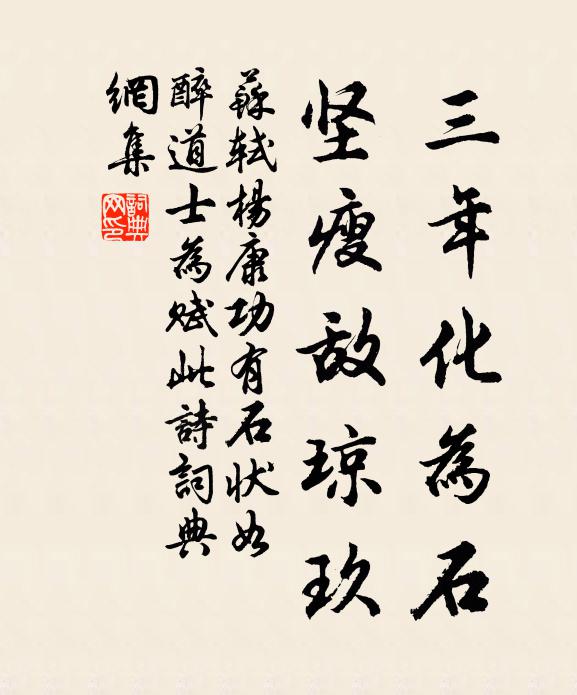 三年化為石
坚瘦敌琼玖
蘇軾楊康功有石状如
醉道士為赋此詩詞典
網集
詞典
网印